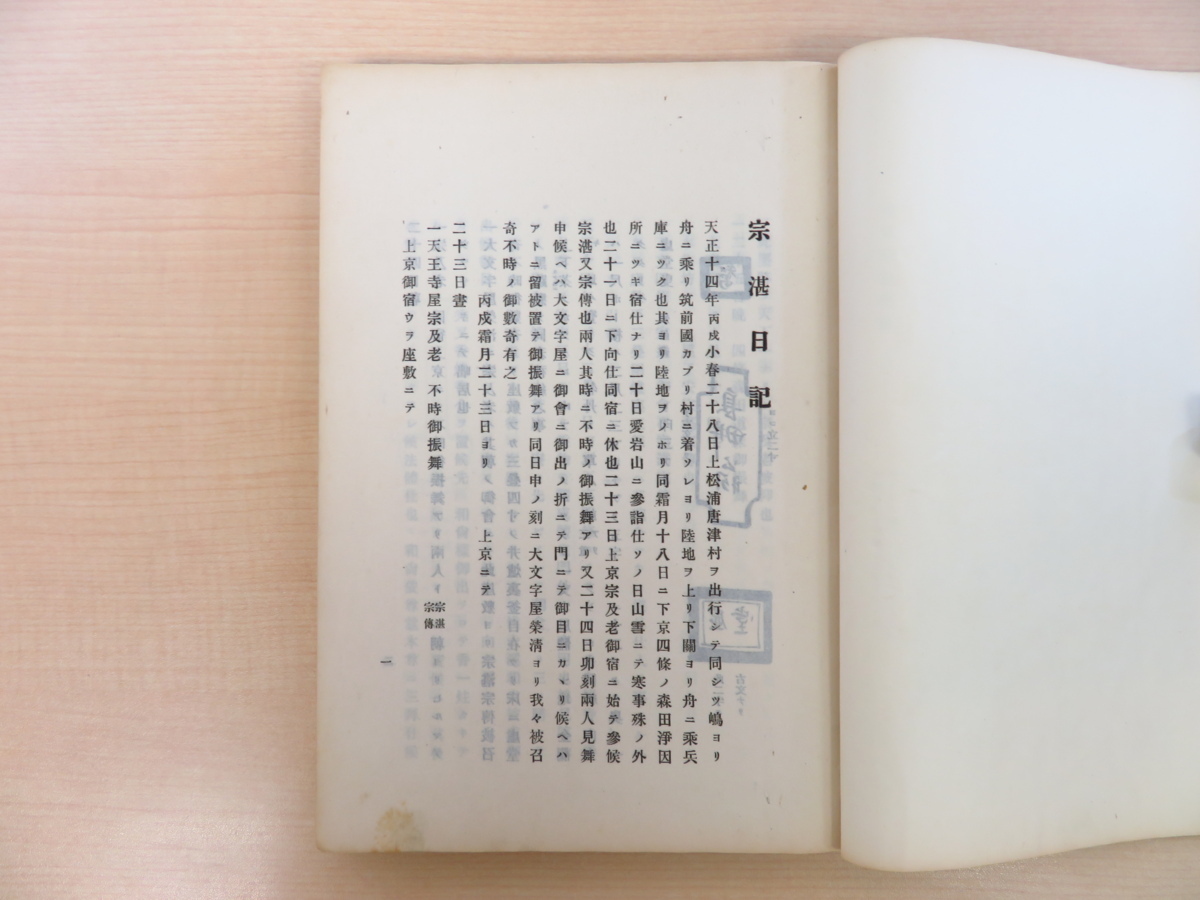 宗湛日記
天正十四年丙戌小春二十八日上松浦唐津村ヲ出行シテ同シツ嶋ヨリ
舟ニ乘リ筑前國カブリ村ニ着ソレヨリ陸地ヲ上リ下關ヨリ舟ニ乘兵
庫ニツク也其ヨリ陸地ヲノホリ同霜月十八日ニ下京四條ノ森田淨因
所ニツキ宿仕ナリ二十日愛岩山ニ參詣仕ソノ日山雪ニテ寒事殊ノ外
也二十一日ニ下向仕同宿ニ休也二十三日上京宗及老御宿ニ始テ參候
宗湛又宗傳也兩人其時ニ不時ノ御振舞アリ又二十四日卯刻兩人見舞
申候ヘハ大文字屋ニ御會ニ御出ノ折ニテ門ニテ御目ニカヽリ候ヘハ
アトニ留被置テ御振舞アリ同日申ノ刻ニ大文字屋榮淸ヨリ我々被召
奇不時ノ御數奇有之
丙戌霜月二十三日ヨリ 上京ニテ
二十三日晝
一天王寺屋宗及老 不時御振舞 宗湛 宗傳
上京御宿ウヲ座敷ニテ
一